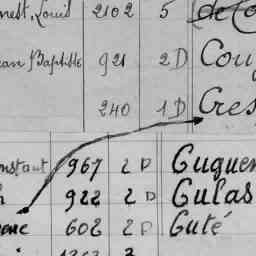 nest, Louis 2102 5
ean Baptiste 921 2 D Cou
240 1 D Cres
nstant 967 2 D Guguen
922 2 D Gulas
602 2 D Guté